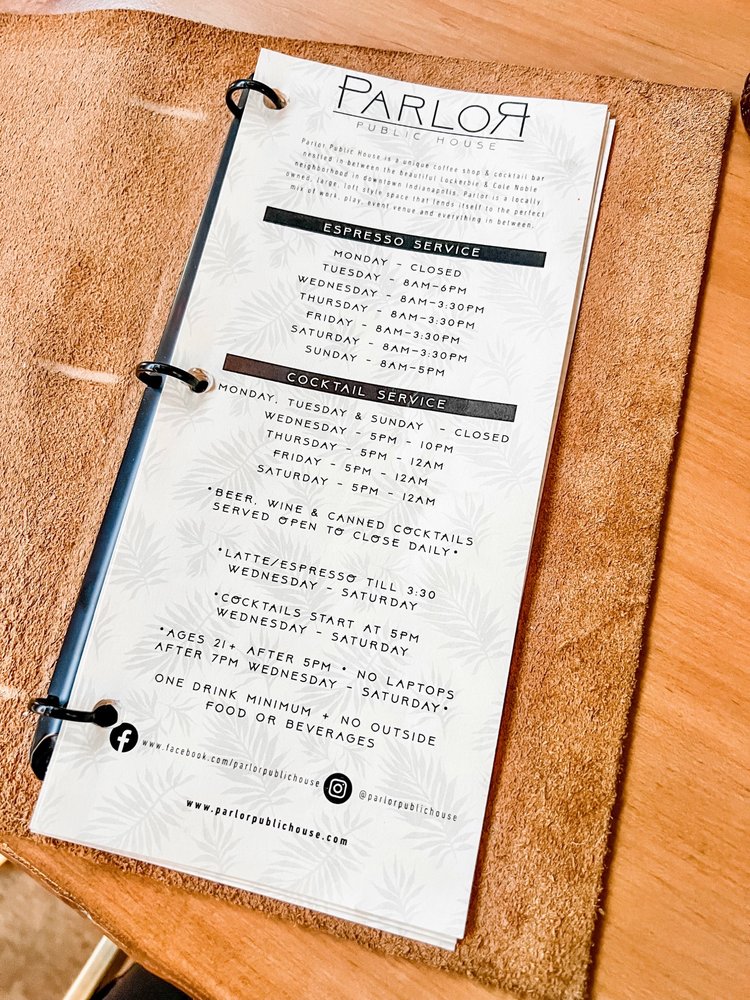 PARLOR
PUBLIC HOUSE
Parlor Public House is a unique coffee shop & cocktail bar
nestled in between the beautiful Lockerbie & Cole Noble
neighborhood in downtown Indianapolis. Parlor is a locally
owned, large, loft style space that lends itself to the perfect
mix of work, play, event venue and everything in between.
ESPRESSO SERVICE
MONDAY - CLOSED
TUESDAY - 8AM-6PM
WEDNESDAY - 8AM-3:30PM
THURSDAY - 8AM-3:30PM
FRIDAY - 8AM-3:30PM
SATURDAY - 8AM-3:30PM
SUNDAY - 8AM-5PM
COCKTAIL SERVICE
MONDAY, TUESDAY & SUNDAY - CLOSED
WEDNESDAY - 5PM - 10PM
THURSDAY - 5PM - 12AM
FRIDAY - 5PM - 12AM
SATURDAY - 5PM - 12AM
*BEER, WINE & CANNED COCKTAILS
SERVED OPEN TO CLOSE DAILY*
*LATTE/ESPRESSO TILL 3:30
WEDNESDAY - SATURDAY
*COCKTAILS START AT 5PM
WEDNESDAY - SATURDAY
*AGES 21+ AFTER 5PM • NO LAPTOPS
AFTER 7PM WEDNESDAY - SATURDAY*
ONE DRINK MINIMUM + NO OUTSIDE
FOOD OR BEVERAGES
www.facebook.com/parlorpublichouse
@parlorpublichouse
www.parlorpublichouse.com